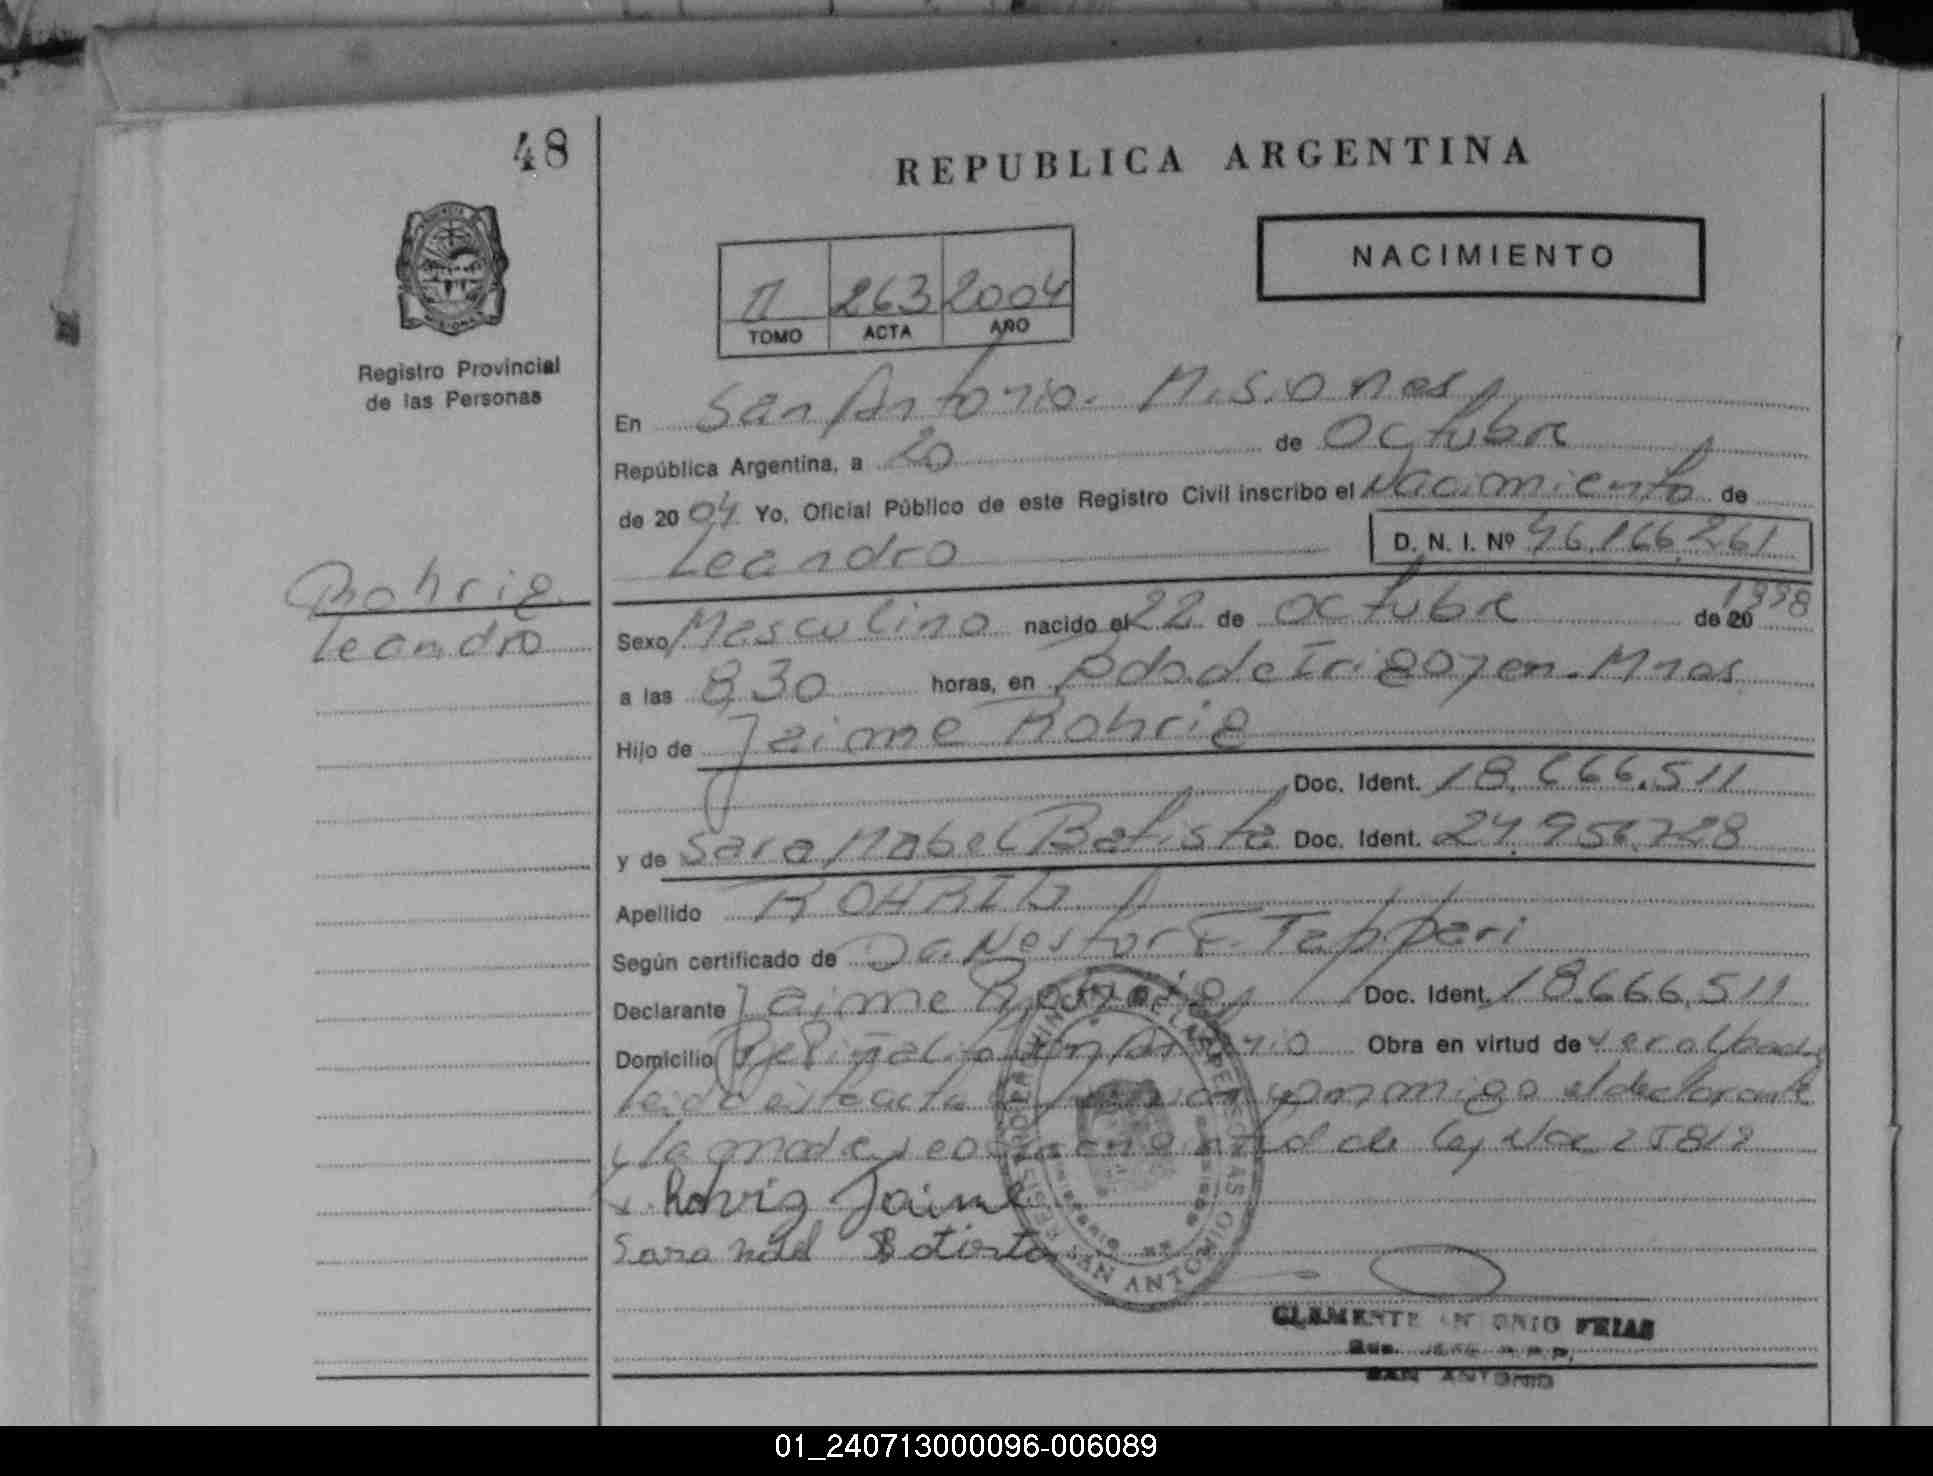 48
REPUBLICA ARGENTINA
NACIMIENTO
II 263 2004
TOMO ACTA AÑO
Registro Provincial
de las Personas
En San Antonio. Misiones
República Argentina, a 20 de Octubre
de 2004 Yo, Oficial Público de este Registro Civil inscribo el Nacimiento de
Leandro D. N. I. Nº 46.166.261
Rohrig
Leandro
Sexo Masculino nacido el 22 de Octubre de 20 1998
a las 8,30 horas, en Pdo. de Irigoyen. Mnes
Hijo de Jaime Rohrig
Doc. Ident. 18.666.511
y de Sara Mabel Batista Doc. Ident. 24.956.728
Apellido ROHRIG
Según certificado de Dr. Nestor F. Tappari
Declarante Jaime Rohrig Doc. Ident. 18.666.511
Domicilio Piñalito San Antonio Obra en virtud de
leida este acta conmigo el declarante
y la madre de ley Nac 25819
x Rohrig Jaime
Sara Mabel Batista
REGISTRO PROVINCIAL DE LAS PERSONAS
SAN ANTONIO
Misiones
CLEMENTE ANTONIO FRIAS
SAN ANTONIO
01_240713000096-006089